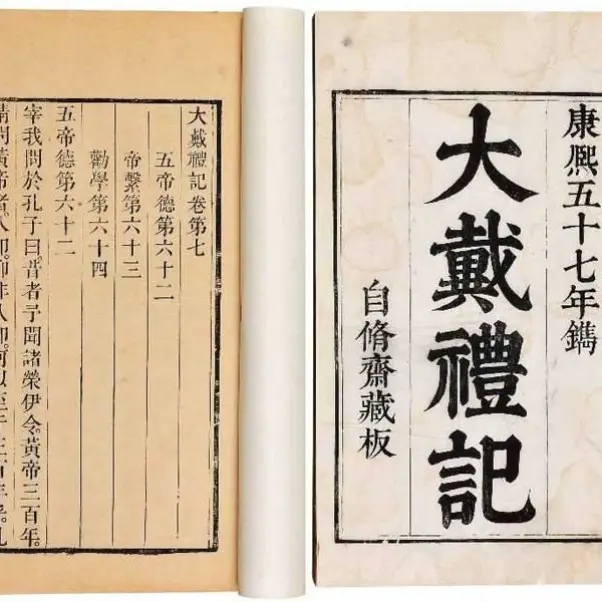 康熙五十七年鐫
大戴禮記
自脩齋藏板
大戴禮記卷第七
五帝德第六十二
帝繫第六十三
勸學第六十四
五帝德第六十二
宰我問於孔子曰。昔者予聞諸榮伊令。黃帝三百年。
請問黃帝者